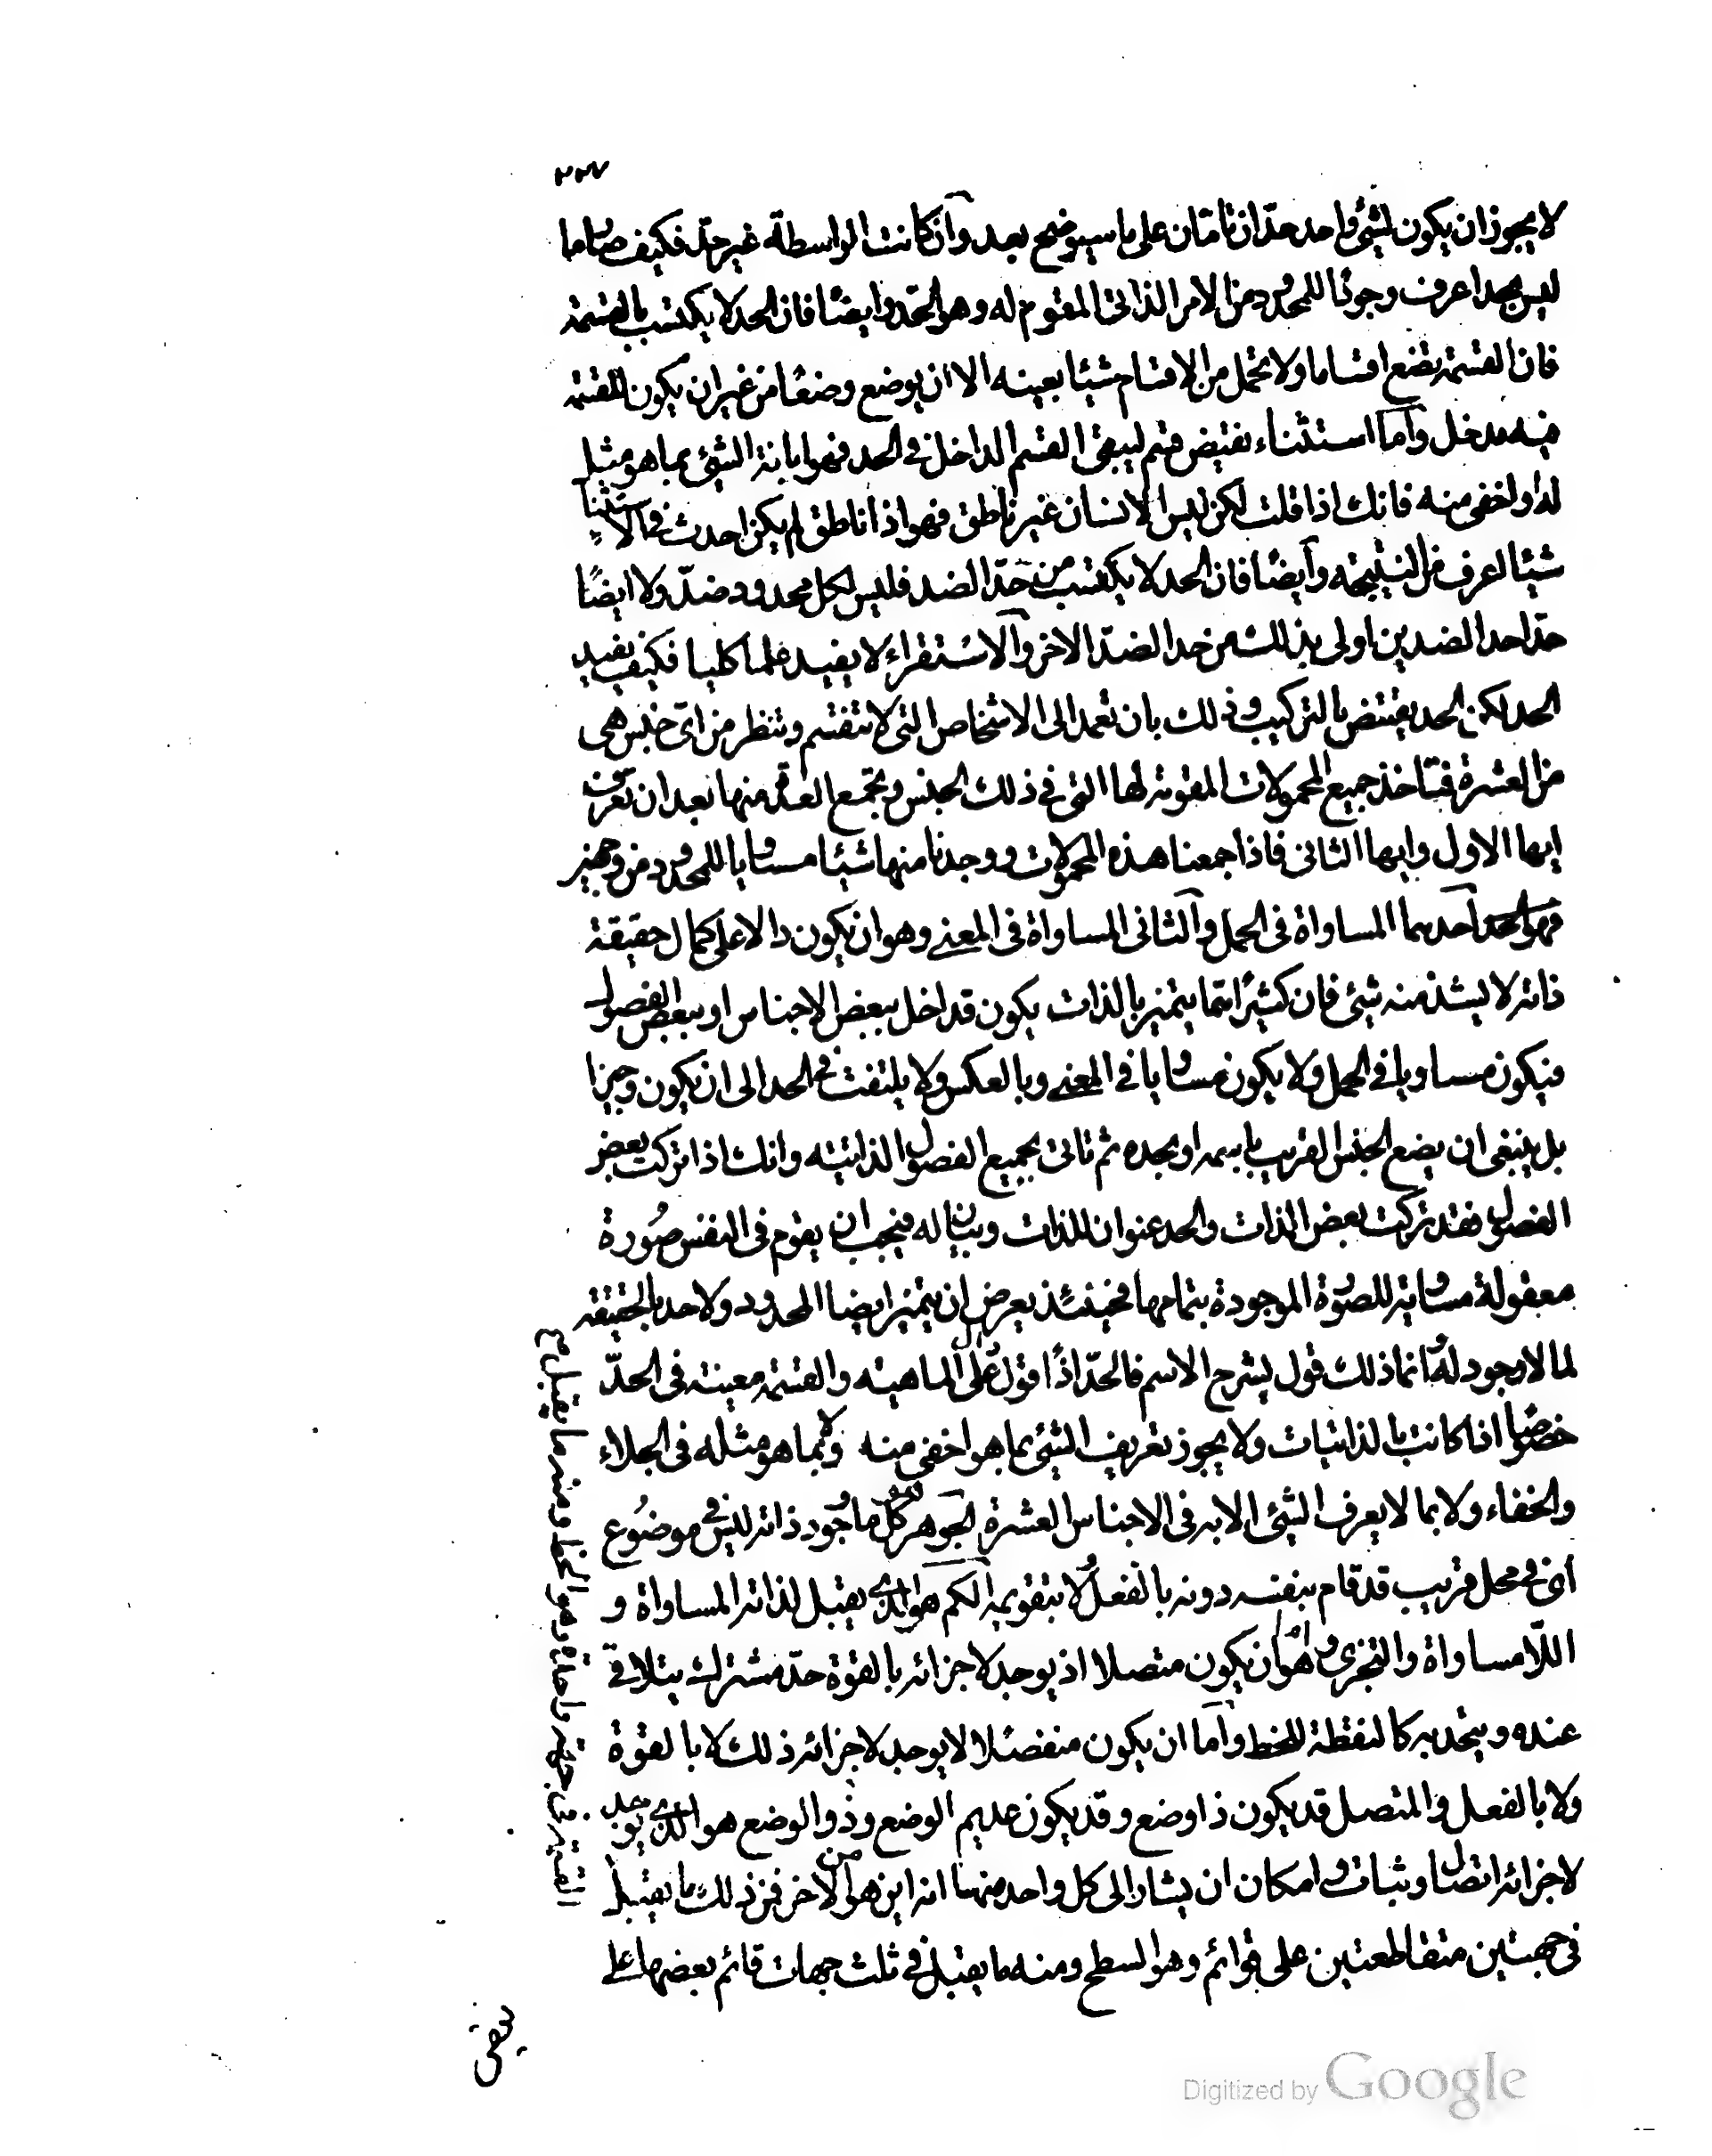 ٢٢٧
لا يجوز ان يكون لشئ واحد حدّان تامّان على ما سيوضح بعد وآن كانت الواسطة غير حدّ فكيف صار ما
ليس بحد اعرف وجودًا للمحدود من الامر الذاتى المقوم له وهو الحد وايضًا فان الحد لا يكتسب بالقسمة
فان القسمة تضع اقساما ولا تحمل من الاقسام شيئا بعينه الا ان يوضع وضعًا من غير ان يكون للقسمة
فيه مدخل وآما استثناء نقيض قسم ليبقى القسم الداخل فى الحد فهو ابانة الشئ بما هو مثله
له او اخفى منه فانك اذا قلت لكن ليس الانسان غير ناطق فهو اذا ناطق لم يكن احدث فى الاستثناء
شيئا اعرف من النتيجة وآيضًا فان الحد لا يكتسب من حدّ الضد فليس لكل محدود ضدّ ولا ايضًا
حدّ احد الضدين اولى بذلك من حد الضدّ الاخر وآلاستقراء لا يفيد علما كليا فكيف يفيد
الحد لكن الحد يقتنص بالتركيب وذلك بان تعمد الى الاشخاص التى لا تنقسم وتنظر من اىّ جنس هى
من العشرة فتاخذ جميع المحمولات المقومة لها التى فى ذلك الجنس وتجمع العدّة منها بعد ان تعرف
ايها الاول وايها الثانى فاذا جمعنا هذه المحمولات ووجدنا منها شيئا مساويا للمحدود من وجهين
فهو الحد آحدهما المساواة فى الحمل وآلثانى المساواة فى المعنى وهو ان يكون دالا على كمال حقيقة
ذاته لا يشذ منه شئ فان كثيرًا مما يتميز بالذات يكون قد اخل ببعض الاجناس او ببعض الفصول
فيكون مساويا فى الحمل ولا يكون مساويا فى المعنى وبالعكس ولا يلتفت فى الحد الى ان يكون وجيزا
بل ينبغى ان يضع الجنس القريب باسمه او بحده ثم تاتى بجميع الفصول الذاتية وانك اذا تركت بعض
الفصول فقد تركت بعض الذات والحد عنوان للذات وبيان له فيجب ان يقوم فى النفس صُورة
معقولة مساوية للصورة الموجودة بتمامها فحينئذ يعرض ان يتميز ايضا المحدود ولا حد بالحقيقة
لما لا وجود له وانما ذلك قول يشرح الاسم فالحدّ اذًا قول دالّ على الماهية والقسمة معينة فى الحدّ
خصوصًا اذا كانت بالذاتيات ولا يجوز تعريف الشئ بما هو اخفى منه ولا بما هو مثله فى الجلاء
والخفاء ولا بما لا يعرف الشئ الا به فى الاجناس العشرة الجوهر هو كل ما وجود ذاته ليس فى موضُوع
اى فى محل قريب قد قام بنفسه دونه بالفعل لا بتقويمه آلكم هو الذى يقبل لذاته المساواة و
اللّامساواة والتجزى وهو اما ان يكون متصلا اذ يوجد لاجزائه بالقوة حدّ مشترك يتلاقى
عنده ويتحد به كالنقطة للخط وآما ان يكون منفصلا لا يوجد لاجزائه ذلك لا بالقوة
ولا بالفعل والمتصل قد يكون ذا وضع وقد يكون عديم الوضع وذو الوضع هو الذى يوجد
لاجزائه اتصال وثبات وامكان ان يشار الى كل واحد منها انه اين هو من الاخر فمن ذلك ما يقبل
فى جهتين متقاطعتين على قوائم وهو السطح ومنه ما يقبل فى ثلث جهات قائم بعضها على
القسمة فى جهة واحدة وهو الخط ومنه ما يقبل م ع
بعض
Digitized by Google